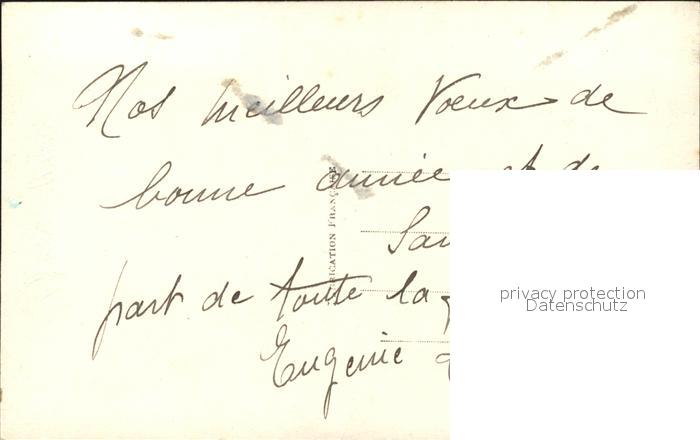 Nos meilleurs Voeux de
bonne année et de
part de toute la
Eugenie
RICATION FRANÇAISE
privacy protection
Datenschutz